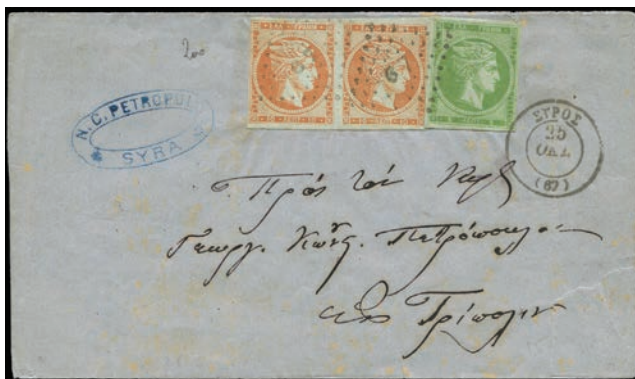 200
N. C. PETROPOUL
SYRA
ΣΥΡΟΣ
25
ΟΚΤ.
(67)
Πρὸς τὸν Κύρ
Γεωργ. Κων. Πετρόπουλον
εἰς Τρίπολιν